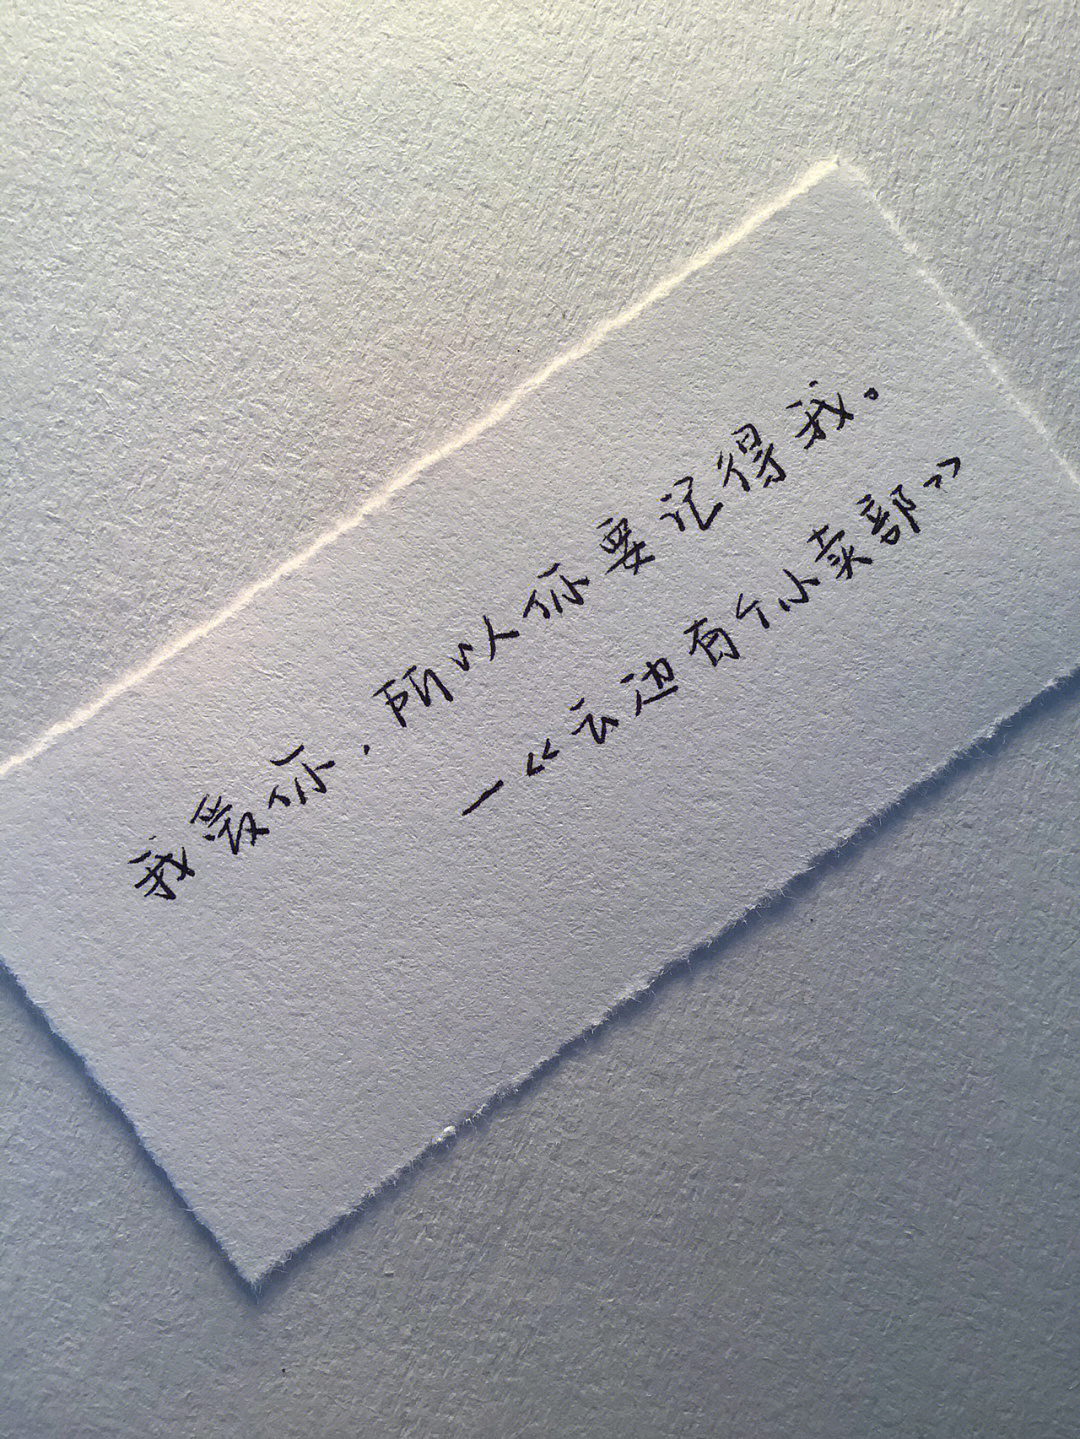 我爱你，所以你要记得我。
—《云边有个小卖部》